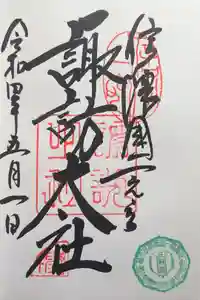 信濃國一之宮
諏訪大社
令和四年五月一日